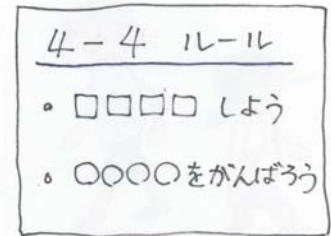 4-4 ルール
・□□□□しよう
・○○○○をがんばろう